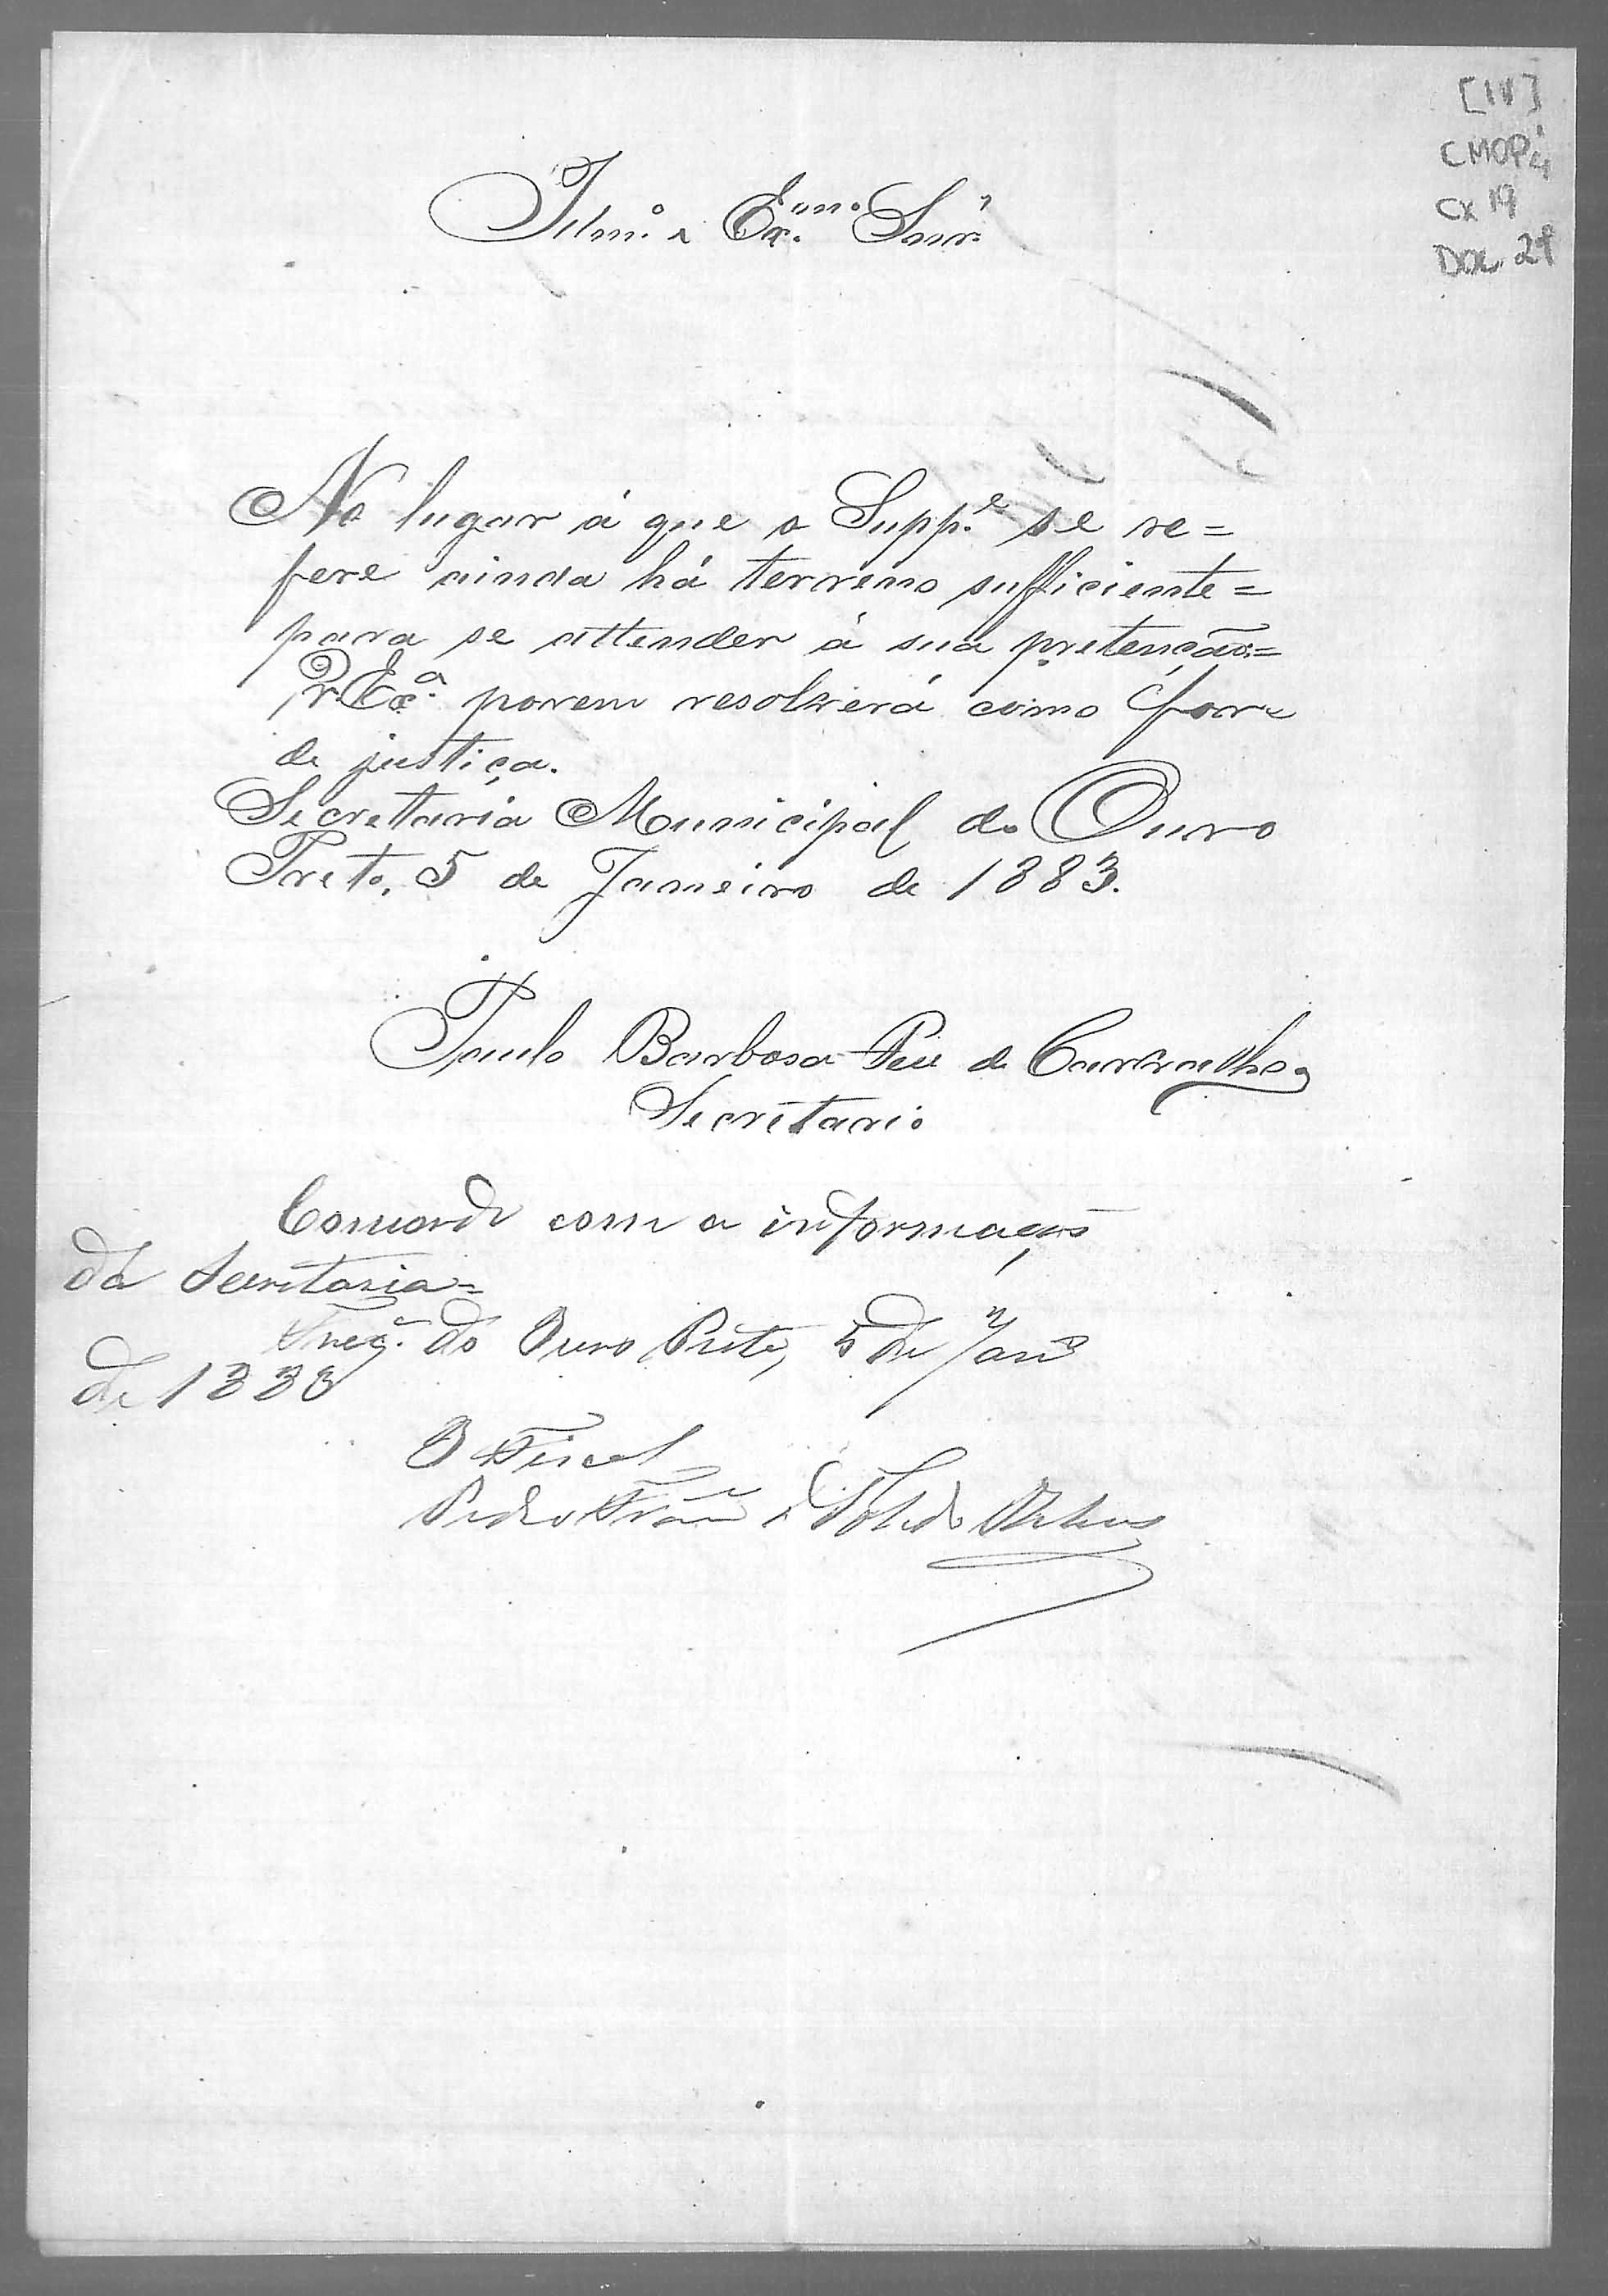 [IV]
CMOP
CX 19
DOC. 29
Illm.o e Ex.mo Snr.
No lugar á que o Supp.e se re=
fere ainda há terreno sufficiente=
para se attender á sua pretenção=
V. Exc.a porem resolverá como for
de justiça.
Secretaria Municipal do Ouro
Preto, 5 de Janeiro de 1883.
Paulo Barbosa de Carvalho
Secretario
Concordo com a informação
da Secretaria=
Freg.a do Ouro Preto, 5 de Jan.o
de 1883
O Fiscal
Pedro Toledo